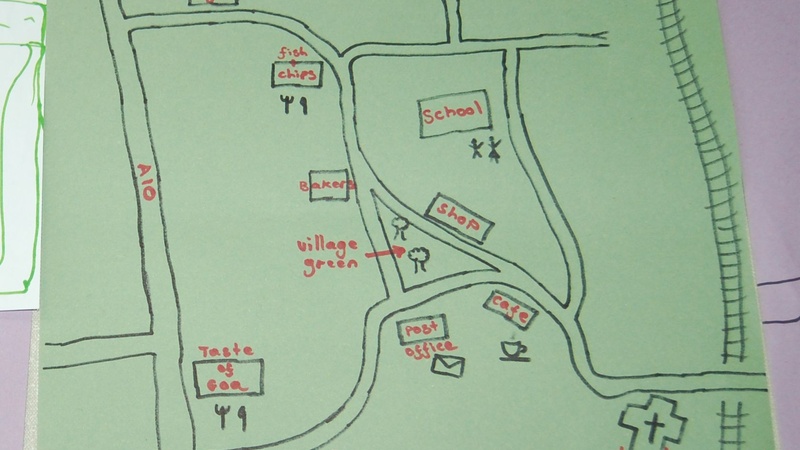 fish
+
chips
School
A10
Bakers
Shop
village
green
cafe
Post
office
Taste
of
Goa